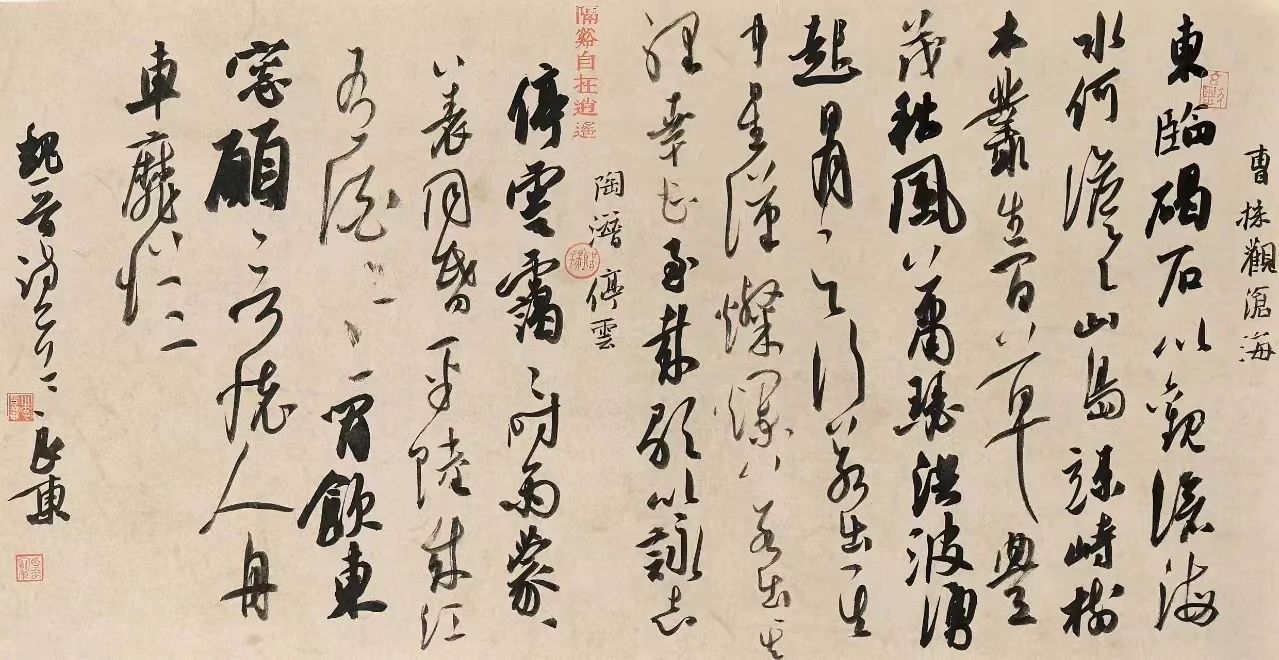 曹操觀滄海
東臨碣石以觀滄海
水何澹〻山島竦峙樹
木叢生百草豐
茂秋風蕭瑟洪波湧
起日月之行若出其
中星漢燦爛若出其
裡幸甚至哉歌以詠志
陶潛停雲
隔谿自在逍遙
停雲靄〻時雨蒙〻
八表同昏平陸成江
有酒〻〻閒飲東
窓願言懷人舟
車靡從
魏晉詩二